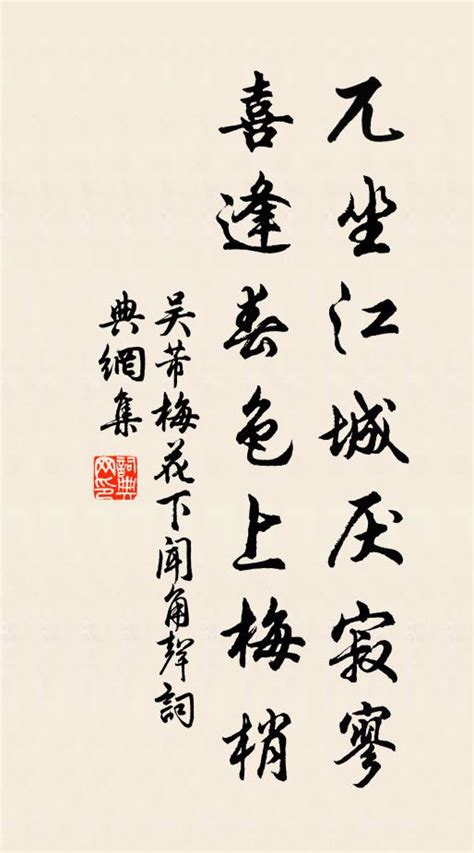 兀坐江城厌寂寥
喜逢春色上梅梢
吴芾梅花下闻角声词
典網集
詞典網印